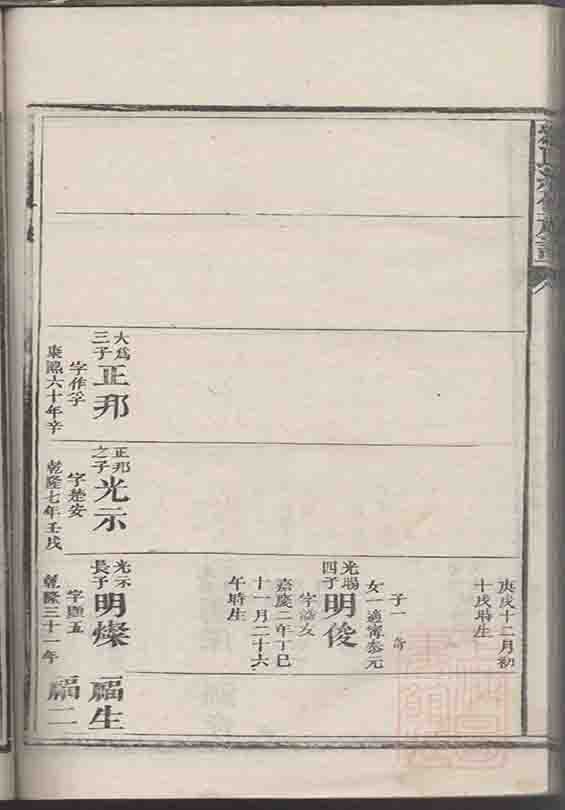 大為
三子
正邦
字作孚
康熙六十年辛
正邦
之子
光示
字楚安
乾隆七年壬戌
庚戌十二月初
十戌時生
子一
女一適甯泰元
光賜
四子
明俊
嘉慶二年丁巳
十一月二十六
午時生
光示
長子
明燦
乾隆三十一年
福生
福二